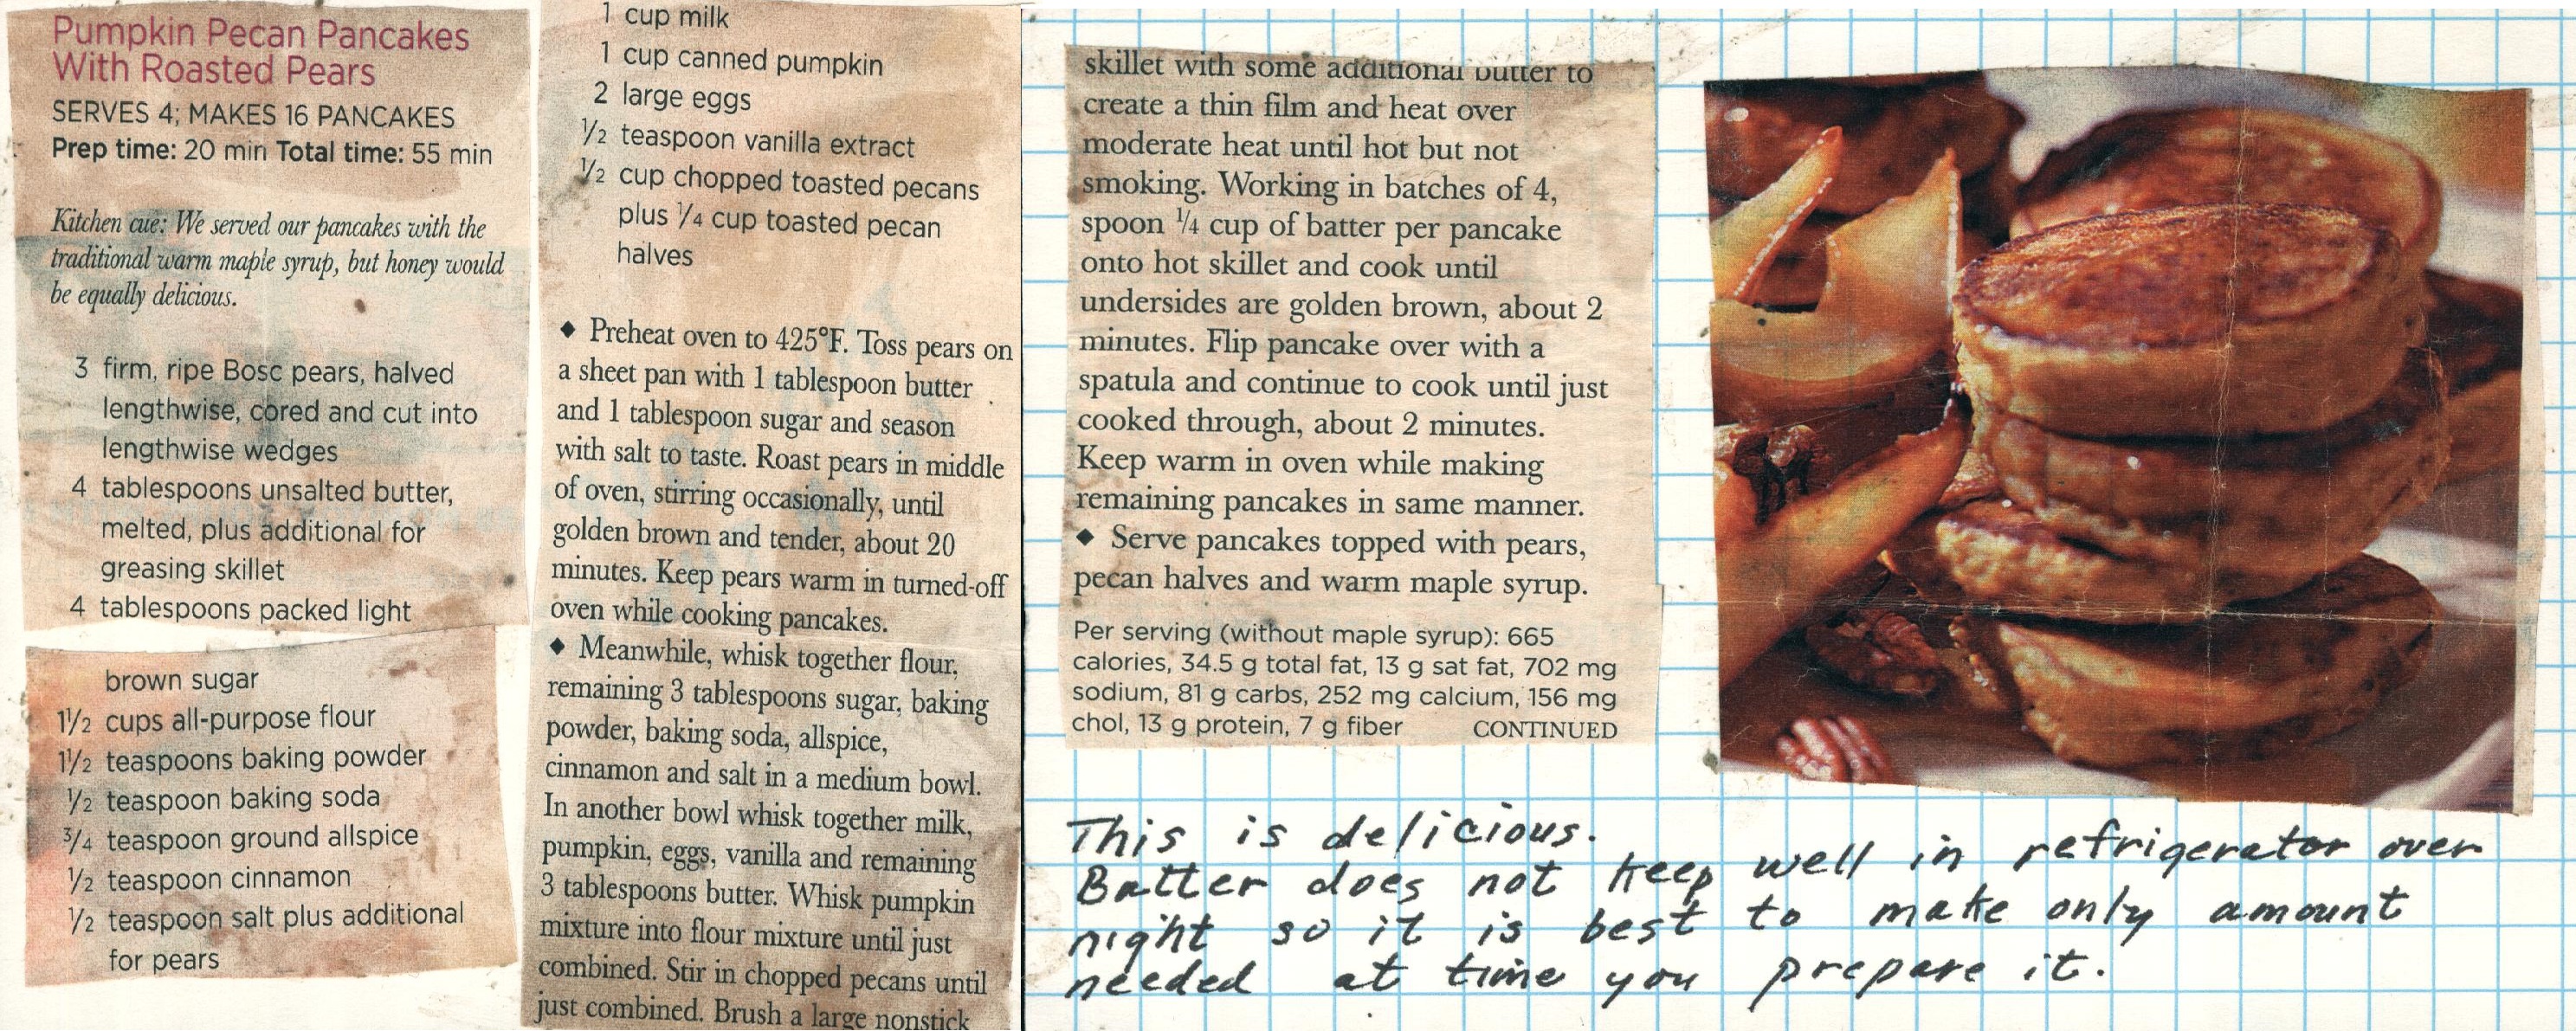 Pumpkin Pecan Pancakes
With Roasted Pears
SERVES 4; MAKES 16 PANCAKES
Prep time: 20 min Total time: 55 min
Kitchen cue: We served our pancakes with the
traditional warm maple syrup, but honey would
be equally delicious.
3 firm, ripe Bosc pears, halved
lengthwise, cored and cut into
lengthwise wedges
4 tablespoons unsalted butter,
melted, plus additional for
greasing skillet
4 tablespoons packed light
brown sugar
1½ cups all-purpose flour
1½ teaspoons baking powder
½ teaspoon baking soda
¾ teaspoon ground allspice
½ teaspoon cinnamon
½ teaspoon salt plus additional
for pears
1 cup milk
1 cup canned pumpkin
2 large eggs
½ teaspoon vanilla extract
½ cup chopped toasted pecans
plus ¼ cup toasted pecan
halves
◆ Preheat oven to 425°F. Toss pears on
a sheet pan with 1 tablespoon butter
and 1 tablespoon sugar and season
with salt to taste. Roast pears in middle
of oven, stirring occasionally, until
golden brown and tender, about 20
minutes. Keep pears warm in turned-off
oven while cooking pancakes.
◆ Meanwhile, whisk together flour,
remaining 3 tablespoons sugar, baking
powder, baking soda, allspice,
cinnamon and salt in a medium bowl.
In another bowl whisk together milk,
pumpkin, eggs, vanilla and remaining
3 tablespoons butter. Whisk pumpkin
mixture into flour mixture until just
combined. Stir in chopped pecans until
just combined. Brush a large nonstick
skillet with some additional butter to
create a thin film and heat over
moderate heat until hot but not
smoking. Working in batches of 4,
spoon ¼ cup of batter per pancake
onto hot skillet and cook until
undersides are golden brown, about 2
minutes. Flip pancake over with a
spatula and continue to cook until just
cooked through, about 2 minutes.
Keep warm in oven while making
remaining pancakes in same manner.
◆ Serve pancakes topped with pears,
pecan halves and warm maple syrup.
Per serving (without maple syrup): 665
calories, 34.5 g total fat, 13 g sat fat, 702 mg
sodium, 81 g carbs, 252 mg calcium, 156 mg
chol, 13 g protein, 7 g fiber CONTINUED
This is delicious.
Batter does not keep well in refrigerator over
night so it is best to make only amount
needed at time you prepare it.